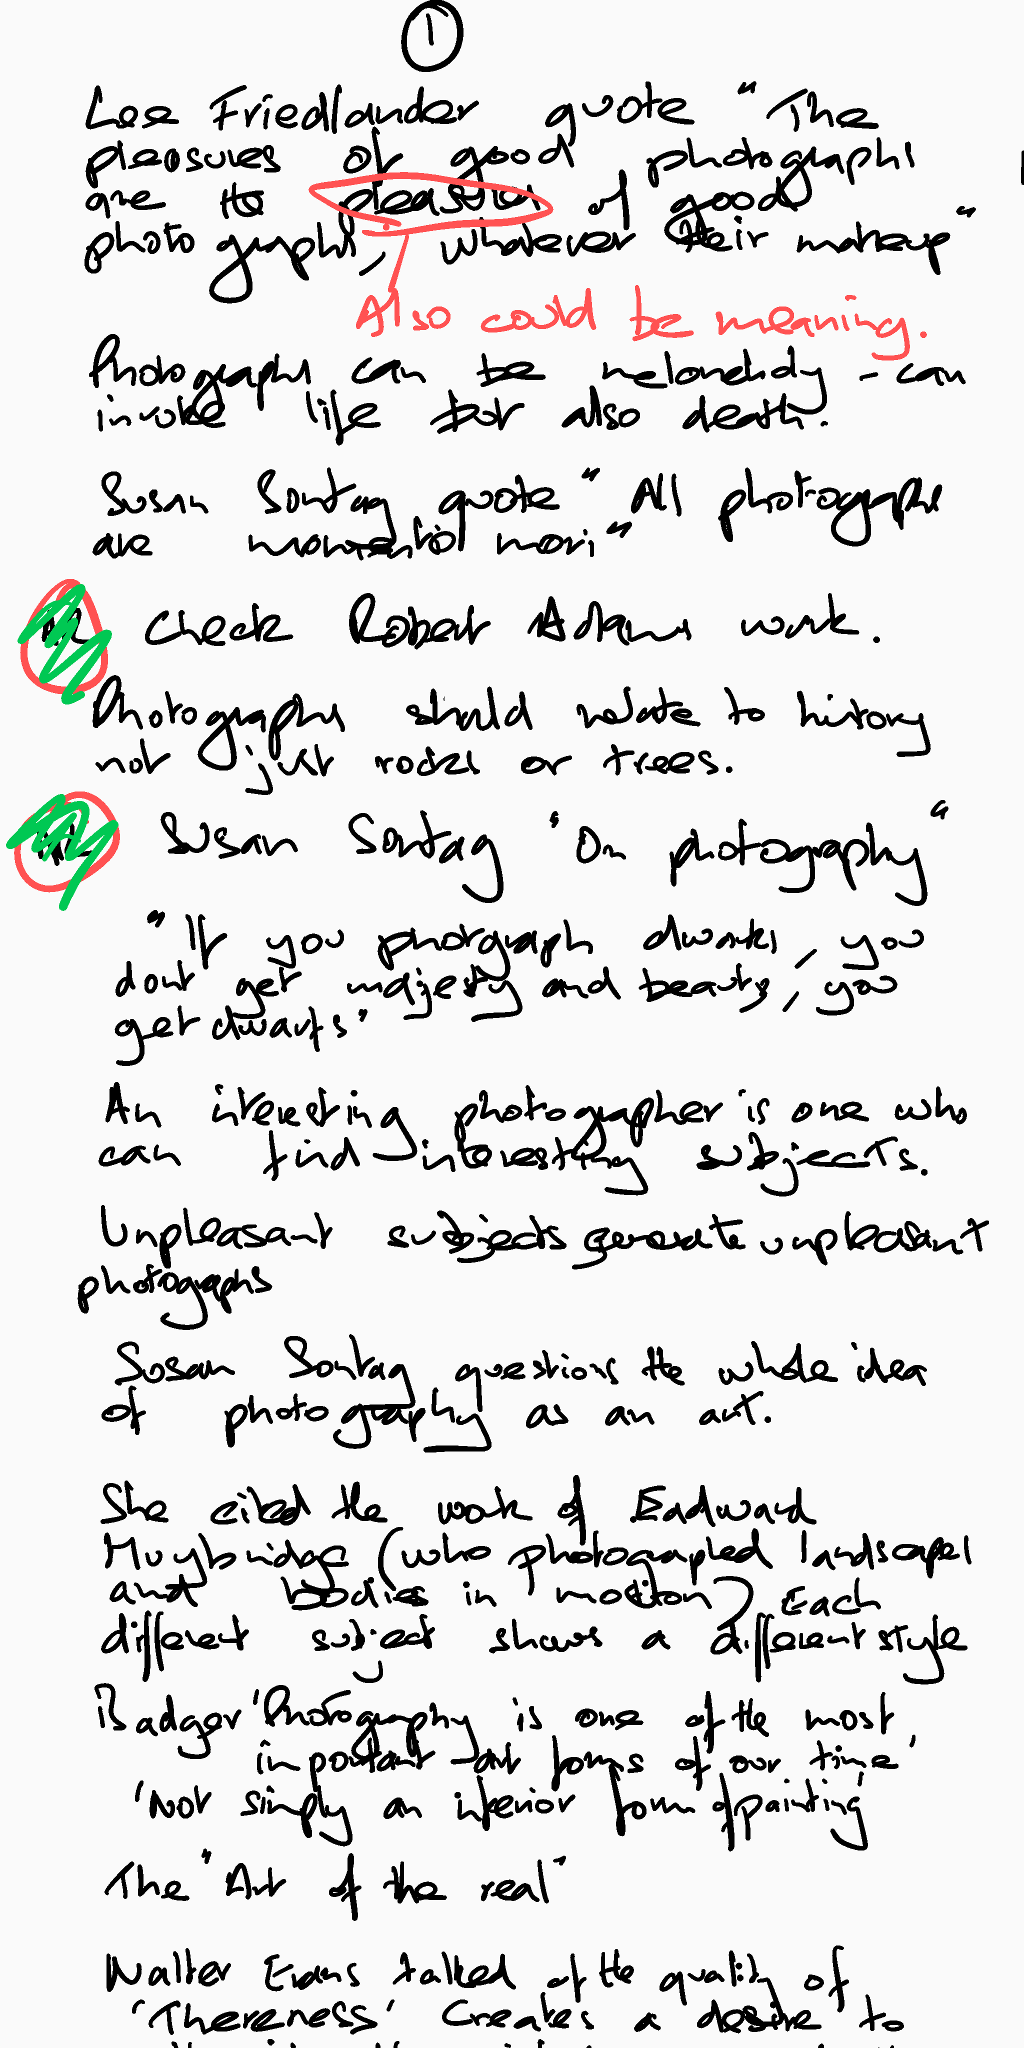 1
Lee Friedlander quote "The
pleasures of good photographs
are the pleasures of good
photographs, whatever their makeup"
Also could be meaning.
Photographs can be melancholy - can
invoke life but also death.
Susan Sontag quote "All photographs
are momento mori"
Check Robert Adams work.
Photographs should relate to history
not just rocks or trees.
Susan Sontag "On photography"
"If you photgraph dwarfs, you
dont get majesty and beauty, you
get dwarfs"
An interesting photographer is one who
can find interesting subjects.
Unpleasant subjects generate unpleasant
photographs
Susan Sontag questions the whole idea
of photography as an art.
She cited the work of Eadward
Muybridge (who photographed landscapes
and bodies in motion) Each
different subject shows a different style
Badger 'Photography is one of the most
important art forms of our time'
'Not simply an inferior form of painting'
The "Art of the real"
Walter Evans talked of the quality of
'Thereness' Creates a desire to